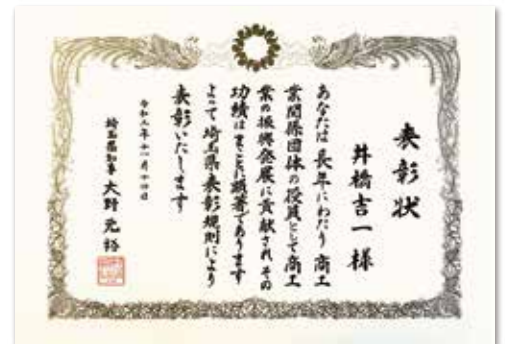 表彰状
井橋吉一様
あなたは長年にわたり商工
業関係団体の役員として商工
業の振興発展に貢献されその
功績はまことに顕著であります
よって埼玉県表彰規則により
表彰いたします
年十一月十四日
埼玉県知事 大野元裕